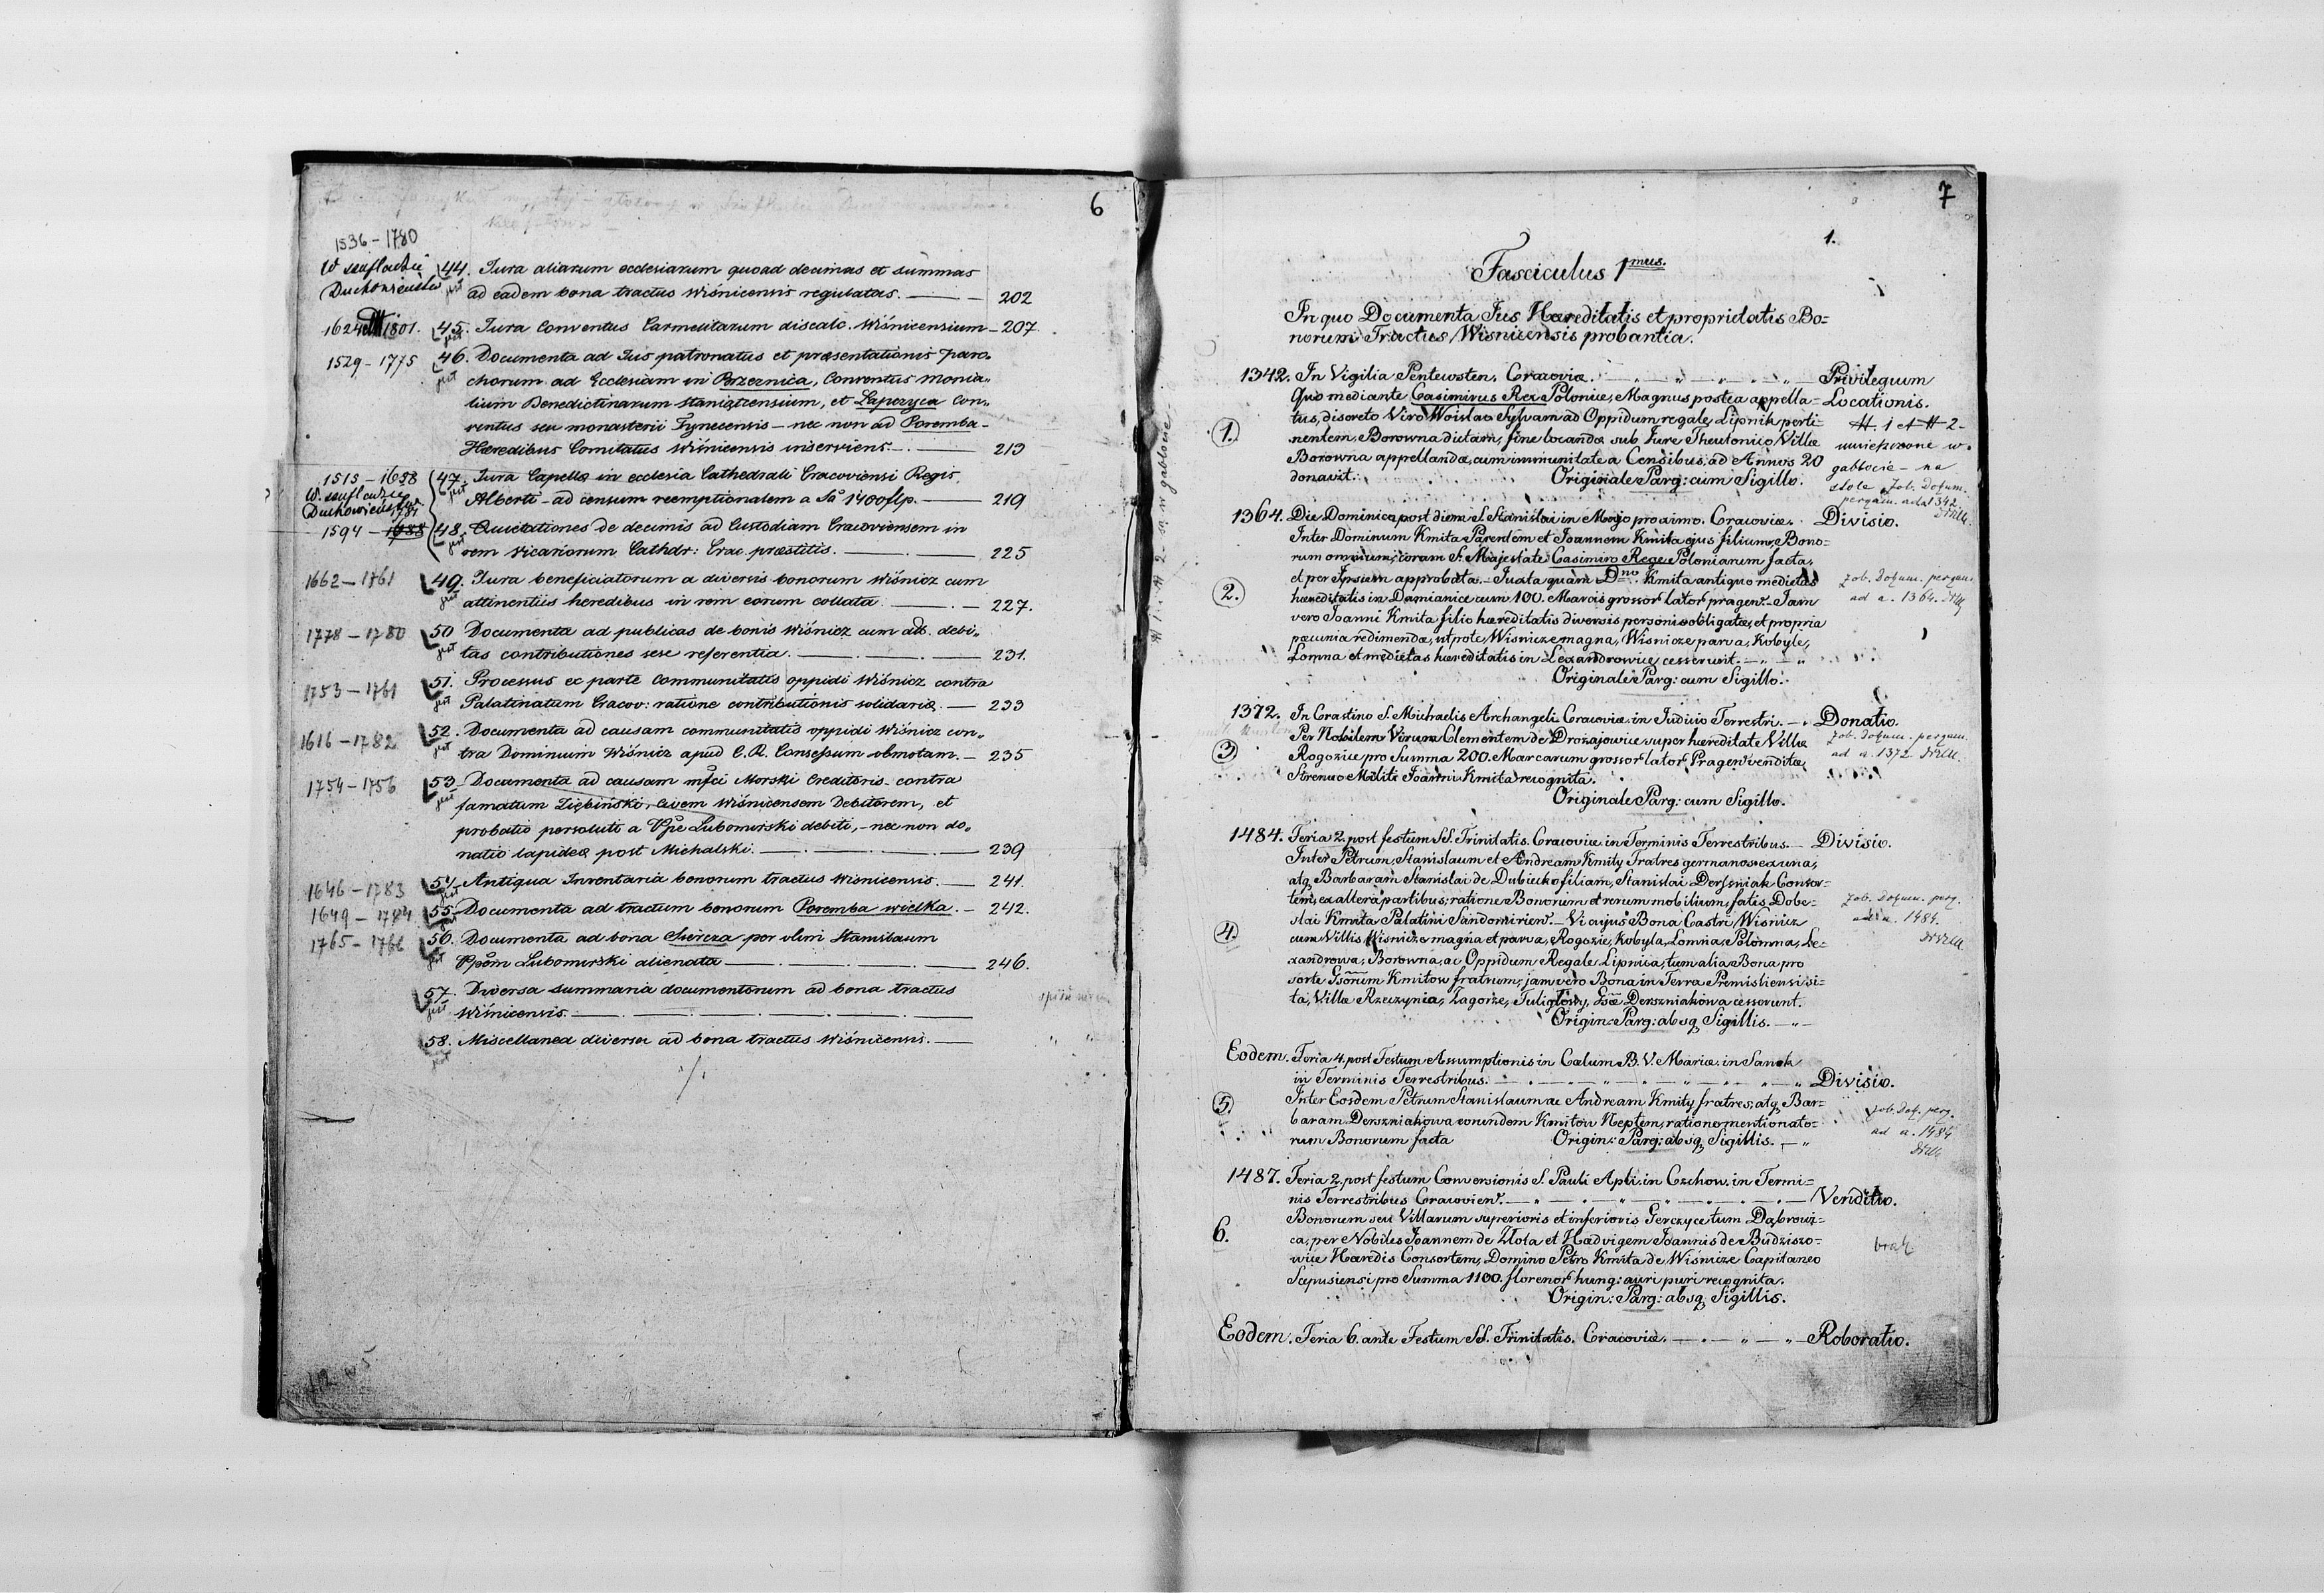 6
1536 – 1780
W szufladzie
Duchowieństwo
44. Jura aliarum ecclesiarum quoad decimas et summas
jest ad eadem bona tractus Wiśnicensis regulatas. — 202
1624 1801. 45. Jura Conventus Carmelitarum discalc. Wiśnicensium – 207.
jest
1529 – 1775 46. Documenta ad Jus patronatus et præsentationis paro„
jest chorum ad Ecclesiam in Brzeznica, Conventus monia„
lium Benedictinarum Staniątcensium, et Łapczyca Con„
ventus seu monasterii Tynecensis – nec non ad Poremba –
Hæredibus Comitatus Wiśnicensis inserviens. — 213
1515 – 1658 47. Jura Capellæ in ecclesia Cathedrali Cracoviensi Regis
W. szufladzie
Duchowieństwo
jest Alberti – ad censum reemptionalem a Sa 1400 flp. — 219
1781
1594 – 1688 48. Quietationes de decimis ad Custodiam Cracoviensem in
jest rem Vicariorum Cathdr: Crac. præstitis. — 225
1662 – 1761 49. Jura beneficiatorum a diversis bonorum Wiśnicz cum
jest attinentiis heredibus in rem eorum collata. — 227.
1778 – 1780 50 Documenta ad publicas de bonis Wiśnicz cum att. debi„
jest tas contributiones sese referentia. — 231.
1753 – 1761 51. Processus ex parte Communitatis oppidi Wiśnicz contra
jest Palatinatum Cracov: ratione contributionis solidariæ. — 233
1616 – 1782 52. Documenta ad causam communitatis oppidi Wiśnicz con„
jest tra Dominium Wiśnicz apud C. R. Consessum obmotam. – 235
1754 – 1756 53 Documenta ad causam mfci Morski Creditoris contra
jest famatum Ziębiński, civem Wiśnicensem Debitorem, et
probatio persoluti a Lubomirski debiti, – nec non do„
natio lapideæ post Michalski. — 239
1646 – 1783 54 Antiqua Inventaria bonorum tractus Wisnicensis. — 241.
jest
1649 – 1784 55 Documenta ad tractum bonorum Poremba wielka. – 242.
1765 – 1766 56. Documenta ad bona Siercza per olim Stanislaum
jest Lubomirski alienata — 246.
57. Diversa summaria documentorum ad bona tractus
jest Wiśnicensis. —
58. Miscellanea diversa ad bona tractus Wiśnicensis. —
jest
·/·
7
1.
Fasciculus 1mus.
In quo Documenta Jus Hæreditatis et proprietatis Bo=
norum Tractus Wisnicensis probantia.
1342. In Vigilia Pentecosten. Cracoviæ. — Privilegium
Quo mediante Casimirus Rex Poloniæ, Magnus postea appella= Locationis.
tus, discreto Viro Woislao Sylvam ad Oppidum regale Lipnik perti=
1. nentem, Borowna dictam, fine locandæ sub Jure Theutonico Villæ
Borowna appellandæ, cum immunitate a Censibus, ad Annos 20
donavit. Originale Parg: cum Sigillo.
# 1 et # 2 –
umieszczone w
gablocie – na
stole zob. Dokum.
pergam. ad a 1342
1364. Die Dominico post diem S. Stanislai in Majo proximo. Cracoviæ. Divisio.
Inter Dominum Kmita Parentem et Joannem Kmita ejus filium, Bono=
rum omnium, coram S. Majestate Casimiro Rege Poloniarum facta,
et per Ipsum approbata. – Juxta quam Dno Kmita antiquo medietas
2. hæreditatis in Damianice cum 100. Marcis grossor lator pragen. – Jam
vero Joanni Kmita filio hæreditatis diversis personis obligatæ, et propria
pecunia redimendæ, utpote, Wisnicze magna, Wisnicze parva, Kobyle,
Lomna et medietas hæreditatis in Lexandrowice cesserunt. —
Originale Parg: cum Sigillo.
zob. Dokum. pergam.
ad a. 1364.
1372. In Crastino S. Michaelis Archangeli Cracoviæ in Judicio Terrestri. — Donatio.
Per Nobilem Virum Clementem de Drozajowice super hæreditate Villæ
3 Rogozice pro Summa 200. Marcarum grossor lator Pragen vendita,
Strenuo Militi Joanni Kmita recognita.
Originale Parg: cum Sigillo.
zob. Dokum. pergam.
ad a. 1372
1484. Feria 2. post festum SS. Trinitatis. Cracoviæ in Terminis Terrestribus. — Divisio.
Inter Petrum, Stanislaum et Andream Kmity Fratres germanos ex una,
atq Barbaram Stanislai de Dubiecko filiam, Stanislai Dersniak Consor=
tem, ex altera partibus, ratione Bonorum et rerum mobilium, fatis Dobe=
slai Kmita Palatini Sandomirien. – Vi cujus Bona Castri Wisnicz
4. cum Villis Wisnicze magna et parva, Rogozie, Kobyla, Lomna, Polomna, Le=
xandrowa, Borowna, ac Oppidum Regale Lipnica, tum alia Bona pro
sorte Gsorum Kmitow fratrum, jam vero Bona in Terra Premisliensi si=
ta, Villæ Rzeczynia, Zagorze, Tuligłowy, Gsæ Derszniakowa cesserunt.
Origin: Parg: absq Sigillis. —
zob. Dokum. perg.
ad a. 1484.
Eodem. Feria 4. post Festum Assumptionis in Cælum B. V. Mariæ. in Sanok
in Terminis Terrestribus. — Divisio.
5 Inter Eosdem Petrum Stanislaum ac Andream Kmity fratres, atq Bar=
baram Derszniakowa eorundem Kmitow Neptem, ratione mentionato=
rum Bonorum facta Origin: Parg: absq Sigillis. —
zob. Dok. perg.
ad a. 1484
1487. Feria 2. post festum Conversionis S. Pauli Apli. in Czchow. in Termi=
nis Terrestribus Cracovien. — Venditio.
Bonorum seu Villarum superioris et inferioris Gerczyce tum Dąbrowi=
6. ca, per Nobiles Joannem de Zlota et Hadvigem Joannis de Budziszo=
wice Hæredis Consortem, Domino Petro Kmita de Wiśnicze Capitaneo
Scepusiensi pro Summa 1100. florenor hung: auri puri recognita.
Origin: Parg: absq Sigillis.
brak
Eodem. Feria 6. ante Festum SS. Trinitatis. Cracoviæ. — Roboratio.